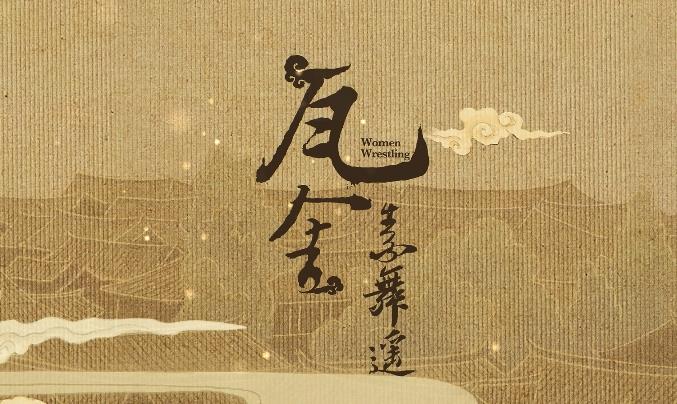 瓦舍
Women
Wrestling
素舞遥